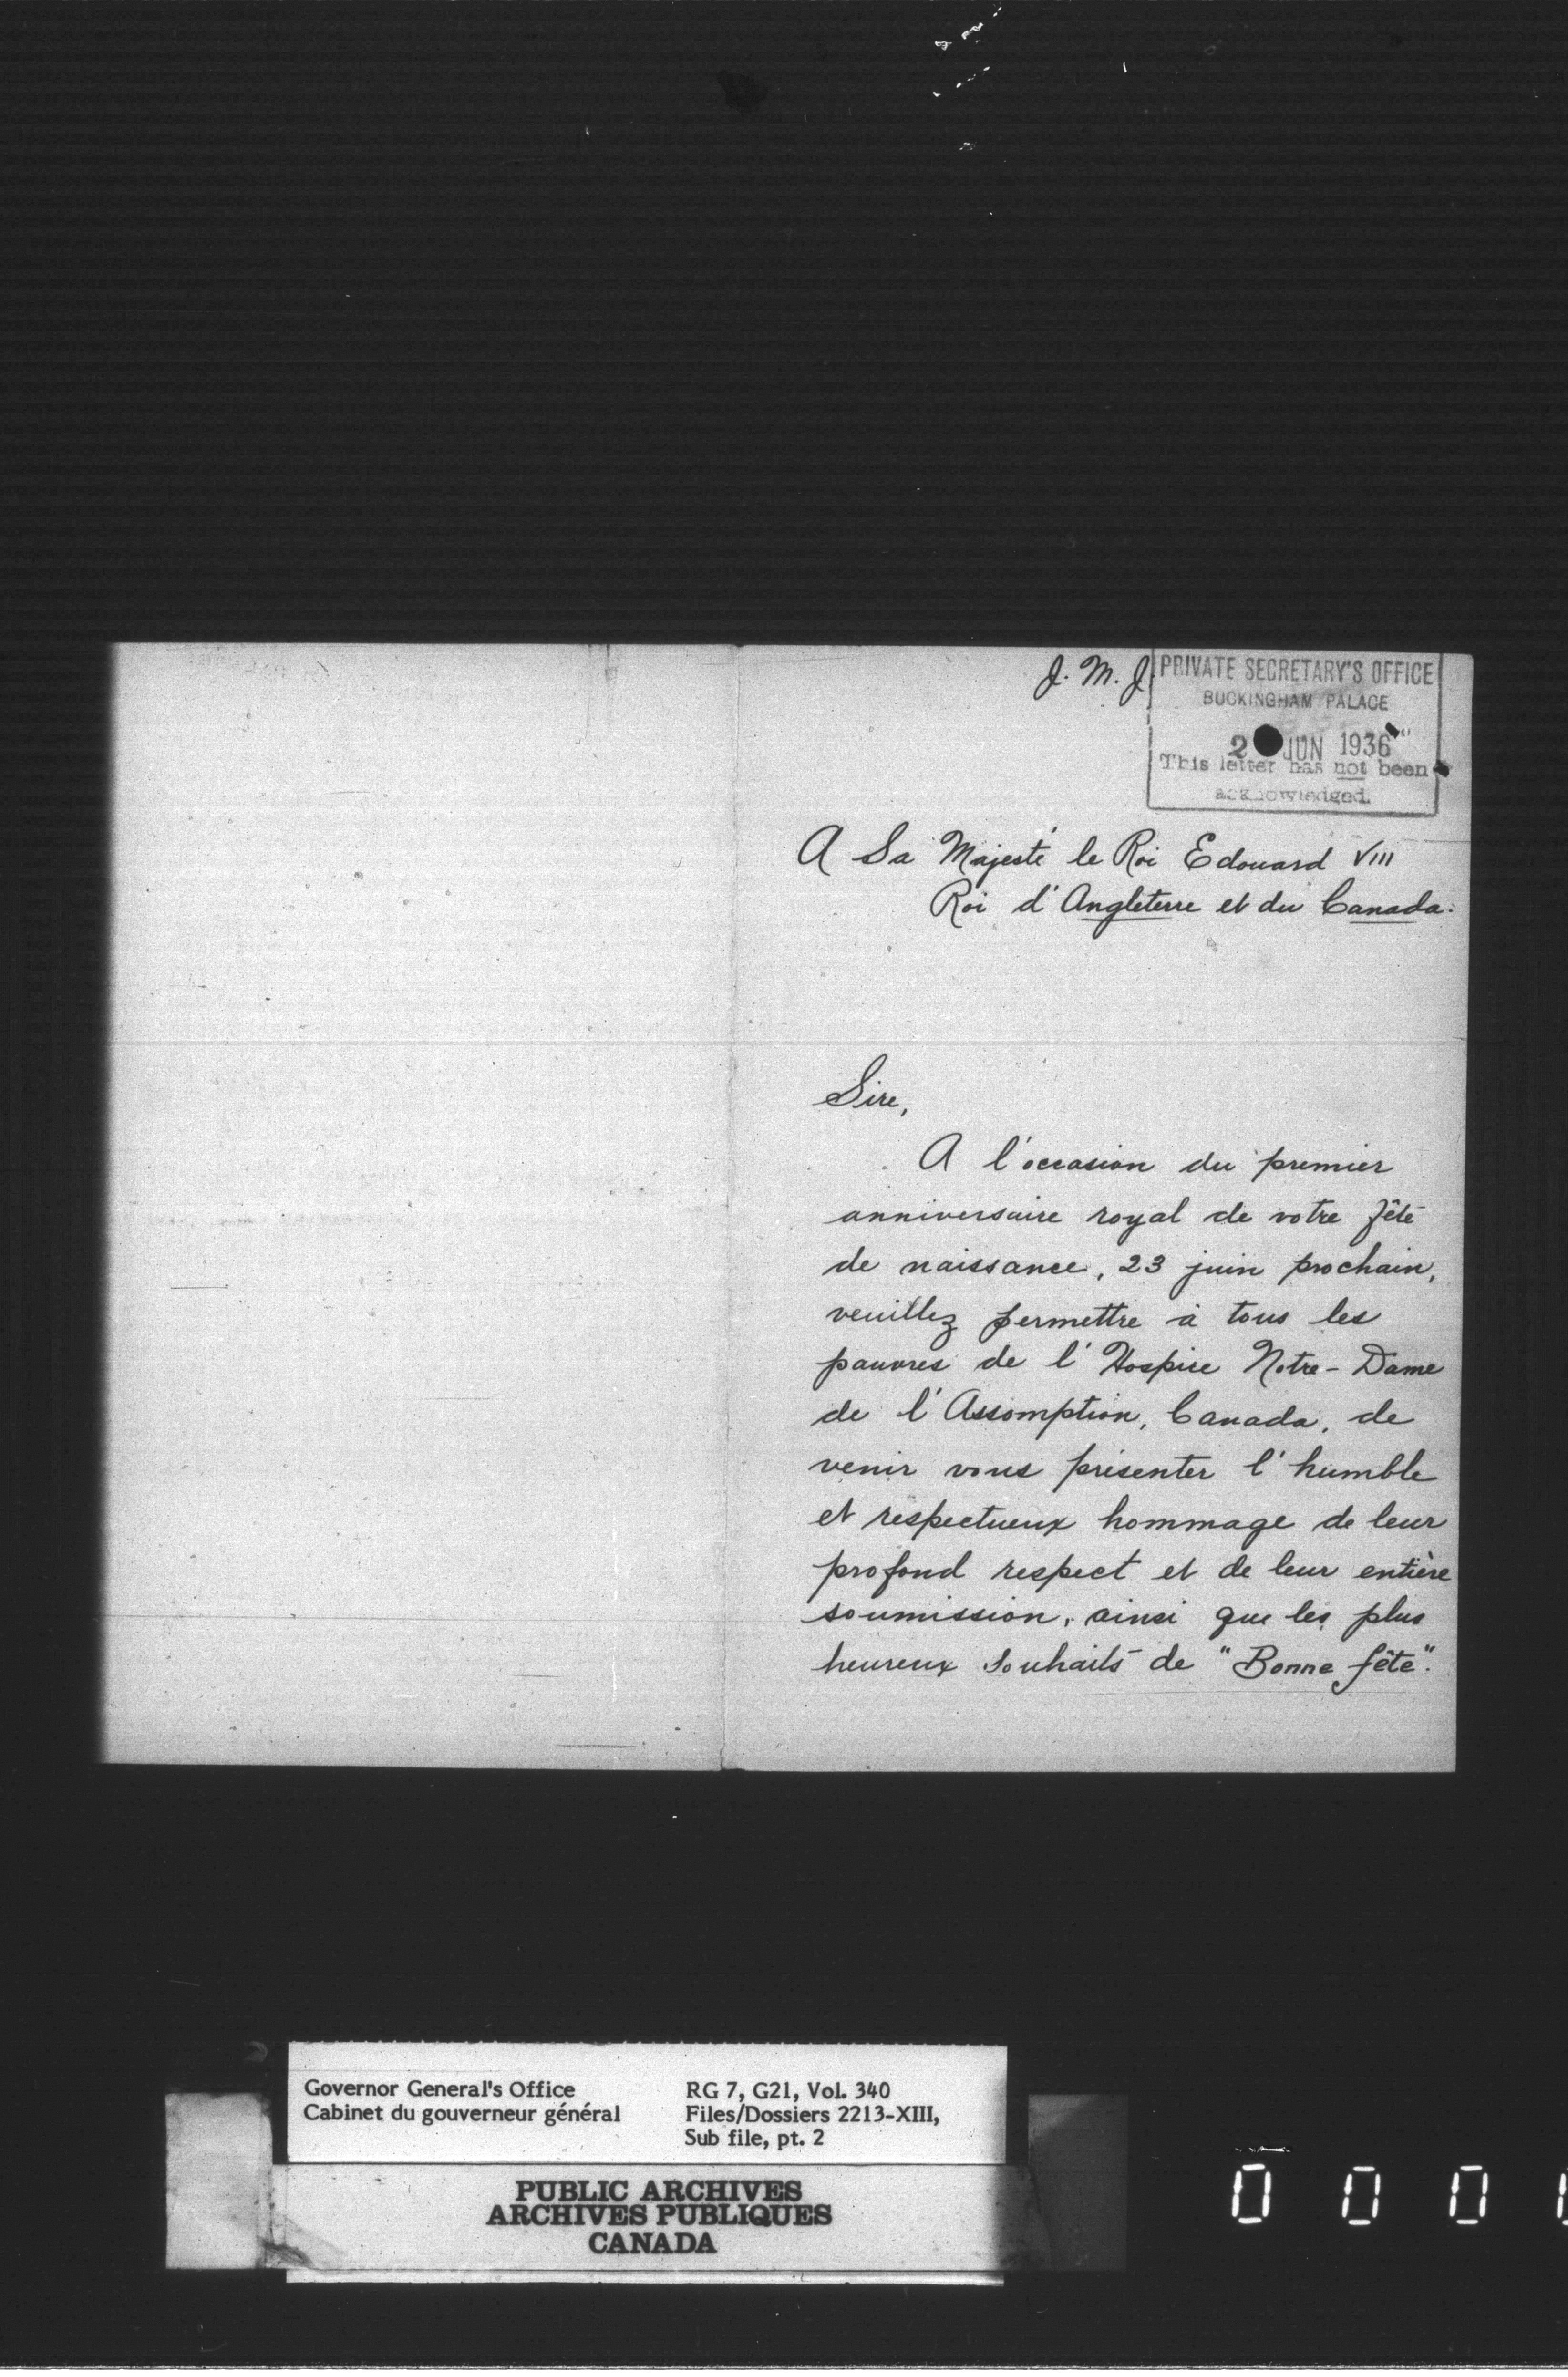 J. M. J.
PRIVATE SECRETARY'S OFFICE
BUCKINGHAM PALACE
2 JUN 1936
This letter has not been
acknowledged.
A Sa Majesté le Roi Edouard VIII
Roi d'Angleterre et du Canada.
Sire,
A l'occasion du premier
anniversaire royal de votre fête
de naissance, 23 juin prochain,
veuillez permettre à tous les
pauvres de l'Hospice Notre-Dame
de l'Assomption, Canada, de
venir vous présenter l'humble
et respectueux hommage de leur
profond respect et de leur entière
soumission, ainsi que les plus
heureux souhaits de "Bonne fête".
Governor General's Office
Cabinet du gouverneur général
RG 7, G21, Vol. 340
Files/Dossiers 2213-XIII,
Sub file, pt. 2
PUBLIC ARCHIVES
ARCHIVES PUBLIQUES
CANADA
0 0 0